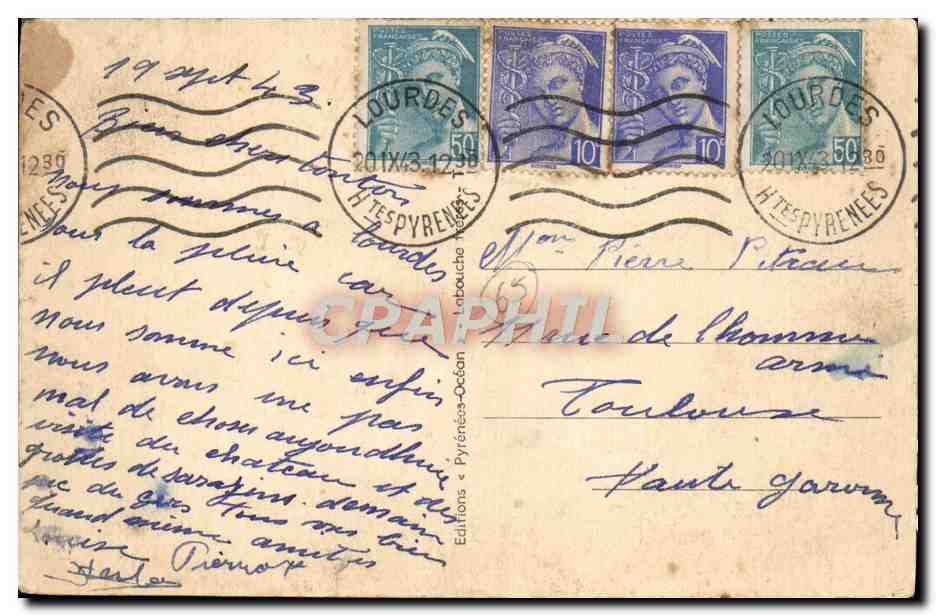 19 sept 43.
Bien chers toutous
nous sommes a Lourdes
sous la pluie car
il pleut depuis que
nous somme ici enfin
nous avons vue pas
mal de choses aujourdhui
visite du chateau et des
grottes de sarazins. demain
pic du gers tous vas bien
quand même amities
Pierrot
POSTES FRANÇAISES
50c
POSTES FRANÇAISES
10c
POSTES FRANÇAISES
10c
POSTES FRANÇAISES
50c
LOURDES
20 IX 43-1230
Htes PYRENEES
LOURDES
20 IX 43-1230
Htes PYRENEES
Mon Pierre
65
de l'homme
armé
Toulouse
Haute Garonne
Editions « Pyrénées-Océan Labouche frères - T
CPAPHIL